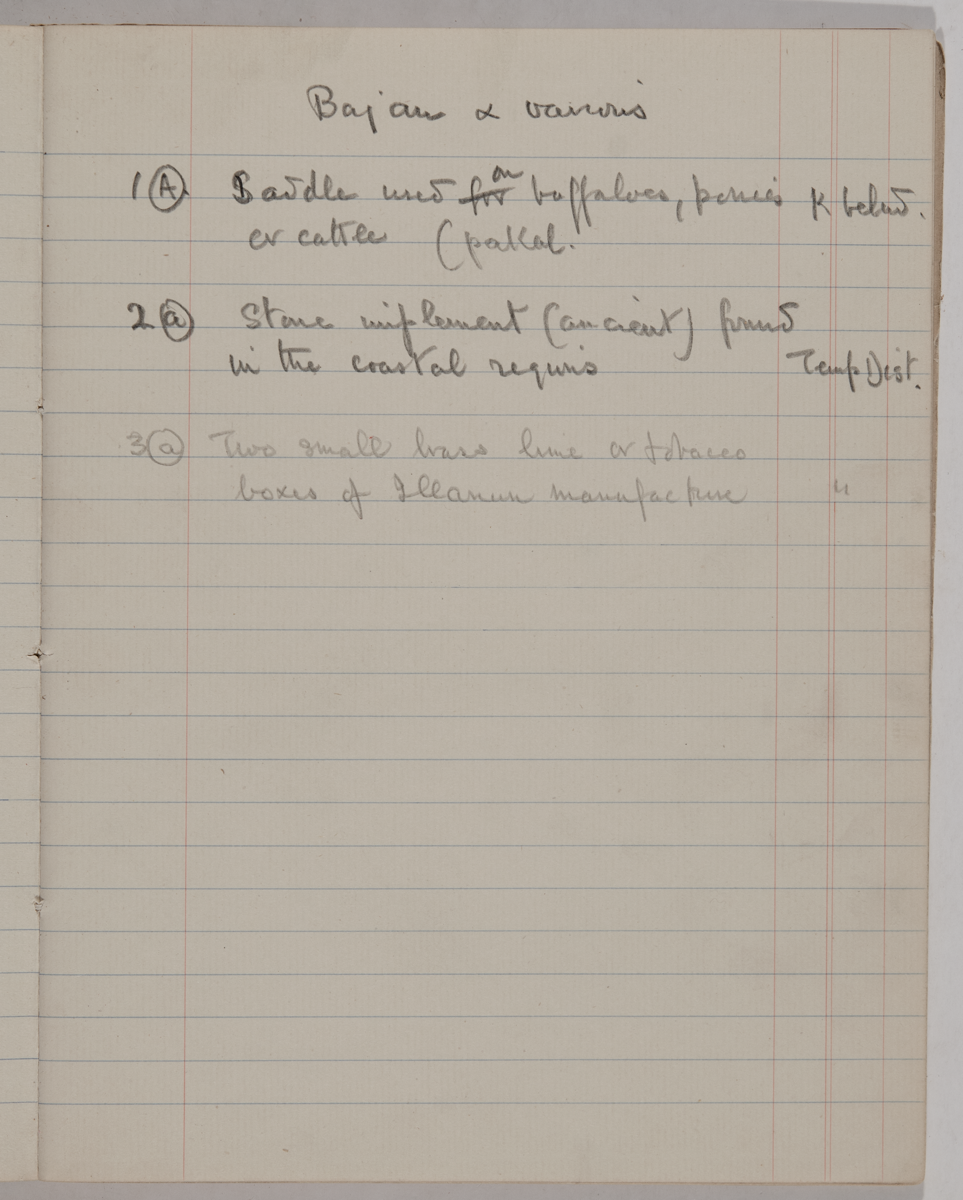 Bajau & various
1 (A) Saddle used for on buffaloes, ponies K belud.
or cattle (pakal.
2 (a) Stone implement (ancient) found
in the coastal regions Temp Dist.
3 (a) Two small brass lime or tobacco
boxes of Illanun manufacture "